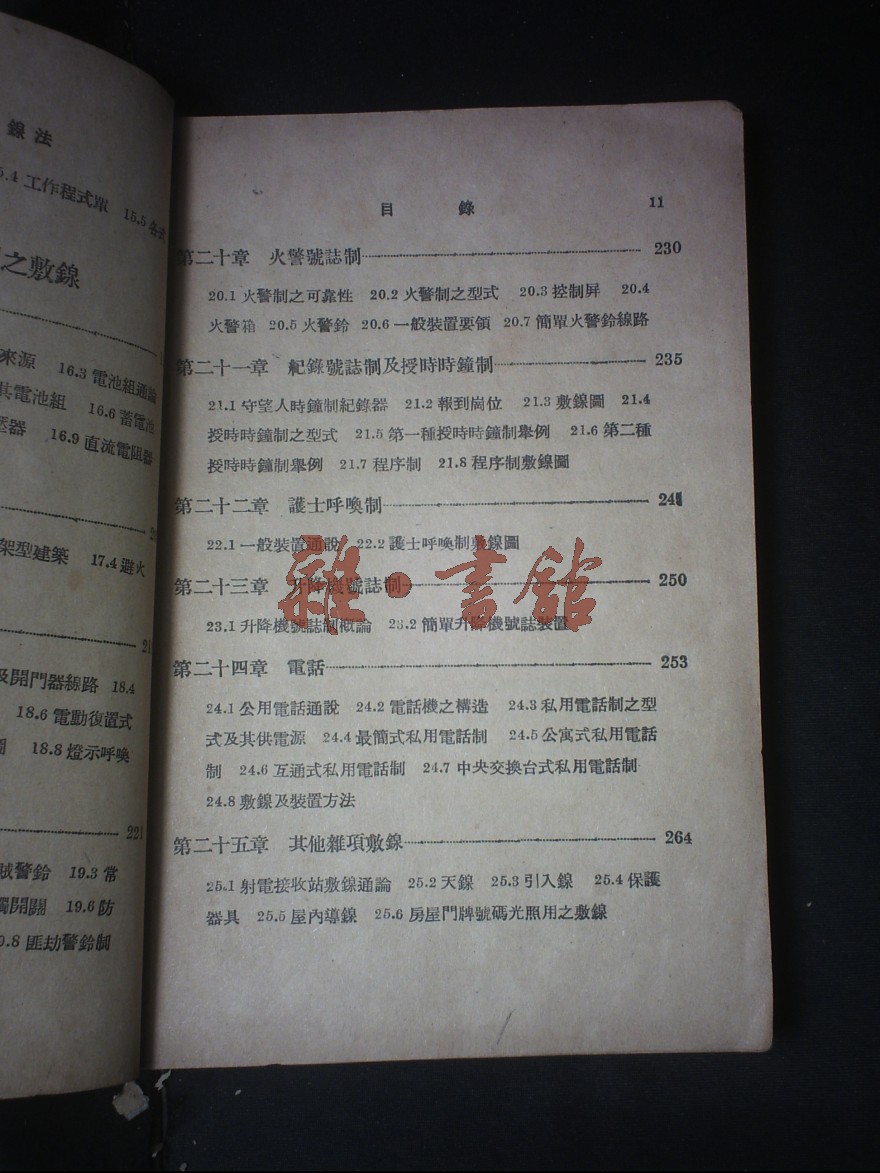 線法
15.4 工作程式單 15.5 各式
之敷線
來源 16.3 電池組通論
其電池組 16.6 蓄電池
壓器 16.9 直流電阻器
架型建築 17.4 避火
及開門器線路 18.4
18.6 電動復置式
18.8 燈示呼喚
221
賊警鈴 19.3 常
觸開關 19.6 防
19.8 匪劫警鈴制
目 錄 11
第二十章 火警號誌制 230
20.1 火警制之可靠性 20.2 火警制之型式 20.3 控制屏 20.4
火警箱 20.5 火警鈴 20.6 一般裝置要領 20.7 簡單火警鈴線路
第二十一章 紀錄號誌制及授時時鐘制 235
21.1 守望人時鐘制紀錄器 21.2 報到崗位 21.3 敷線圖 21.4
授時時鐘制之型式 21.5 第一種授時時鐘制舉例 21.6 第二種
授時時鐘制舉例 21.7 程序制 21.8 程序制敷線圖
第二十二章 護士呼喚制
22.1 一般裝置通說 22.2 護士呼喚制敷線圖
第二十三章 升降機號誌制 250
23.1 升降機號誌制概論 23.2 簡單升降機號誌裝置
第二十四章 電話 253
24.1 公用電話通說 24.2 電話機之構造 24.3 私用電話制之型
式及其供電源 24.4 最簡式私用電話制 24.5 公寓式私用電話
制 24.6 互通式私用電話制 24.7 中央交換台式私用電話制
24.8 敷線及裝置方法
第二十五章 其他雜項敷線 264
25.1 射電接收站敷線通論 25.2 天線 25.3 引入線 25.4 保護
器具 25.5 屋內導線 25.6 房屋門牌號碼光照用之敷線
雜·書館